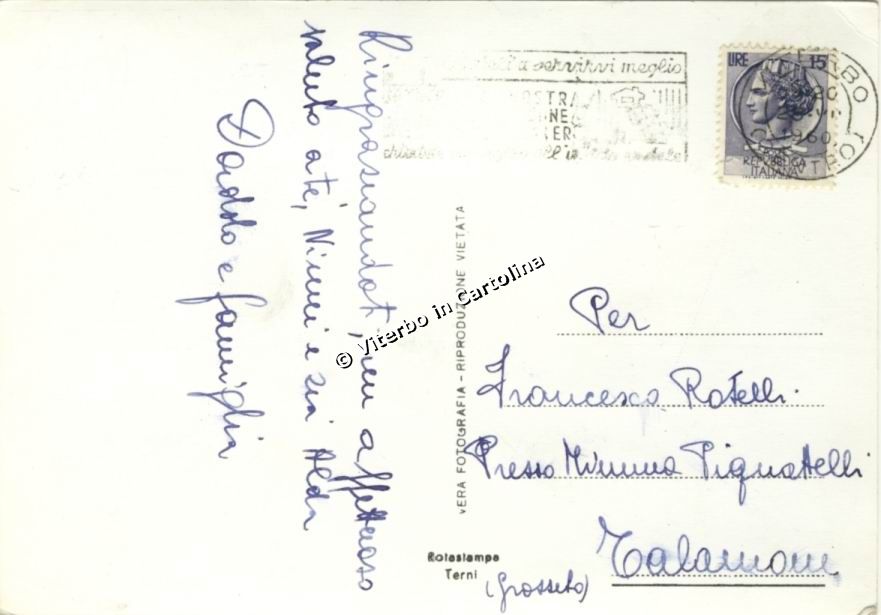 Ringraziandoti, un affettuoso
saluto a te, Mimmi e zia Alda
Daddo e famiglia
servirvi meglio
LIRE 15
REPVBBLICA
ITALIANA
VITERBO
1960
VERA FOTOGRAFIA - RIPRODUZIONE VIETATA
© Viterbo in Cartolina
Per
Francesca Rotelli.
Presso Mimma Pignatelli
Talamone
(Grosseto)
Rotostampa
Terni